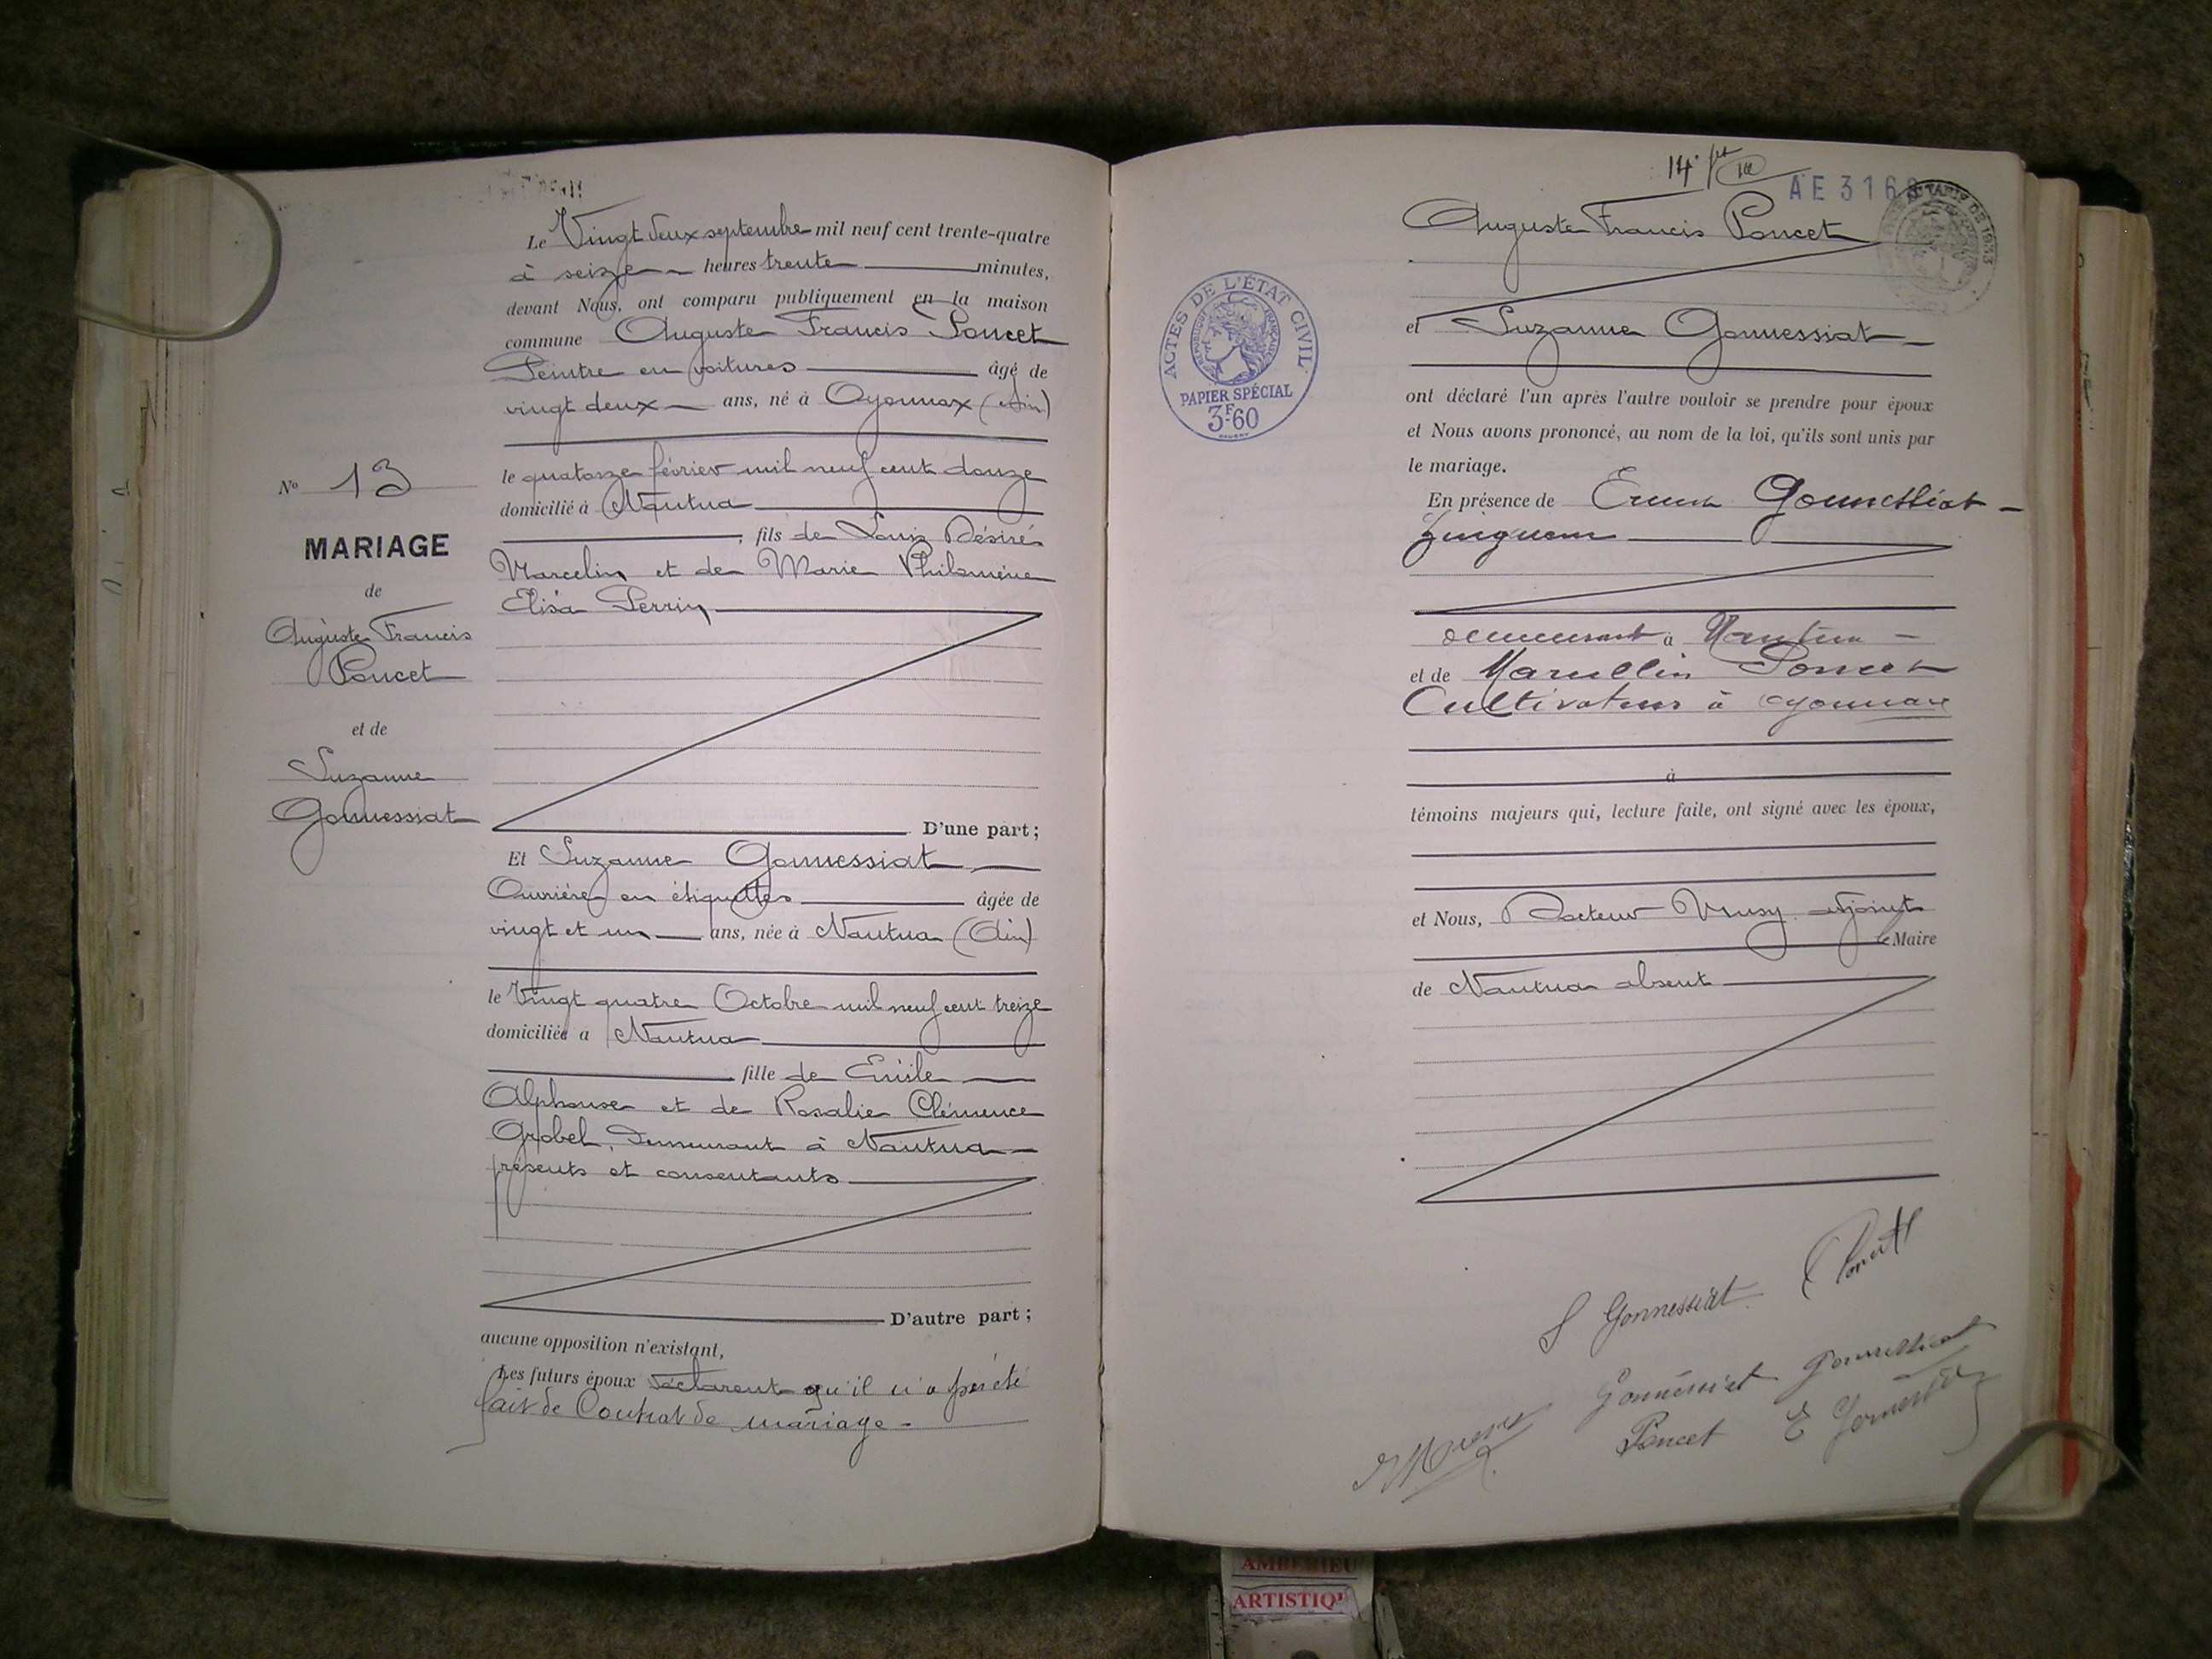 Le Vingt deux septembre mil neuf cent trente-quatre
à seize heures trente minutes,
devant Nous, ont comparu publiquement en la maison
commune Auguste Francis Poncet
Peintre en voitures âgé de
vingt deux ans, né à Oyonnax (Ain)
le quatorze février mil neuf cent douze
domicilié à Nantua
, fils de Louis Désiré
Marcelin et de Marie Philomène
Elisa Perrin
D'une part;
Nº 13
MARIAGE
de
Auguste Francis
Poncet
et de
Suzanne
Gonnessiat
Et Suzanne Gonnessiat
Ouvrière en étiquettes âgée de
vingt et un ans, née à Nantua (Ain)
le Vingt quatre Octobre mil neuf cent treize
domiciliée à Nantua
fille de Emile
Alphonse et de Rosalie Clémence
Grobel, demeurant à Nantua
présents et consentants
D'autre part;
aucune opposition n'existant,
Les futurs époux déclarent qu'il n'a pas été
fait de Contrat de mariage -
14e
AE 316
Auguste Francis Poncet
ACTES DE L'ÉTAT CIVIL
RÉPUBLIQUE FRANÇAISE
PAPIER SPÉCIAL
3F60
et Suzanne Gonnessiat
ont déclaré l'un après l'autre vouloir se prendre pour époux
et Nous avons prononcé, au nom de la loi, qu'ils sont unis par
le mariage.
En présence de Ernest Gonnessiat -
Zingueur
demeurant à Nantua -
et de Marcellin Poncet
Cultivateur à Oyonnax
à
témoins majeurs qui, lecture faite, ont signé avec les époux,
et Nous, Docteur Musy adjoint
le Maire
de Nantua absent
S Gonnessiat Poncet
Gonnessiat Gonnessiat
Poncet E Gonnessiat
AMBERIEU
ARTISTIQ